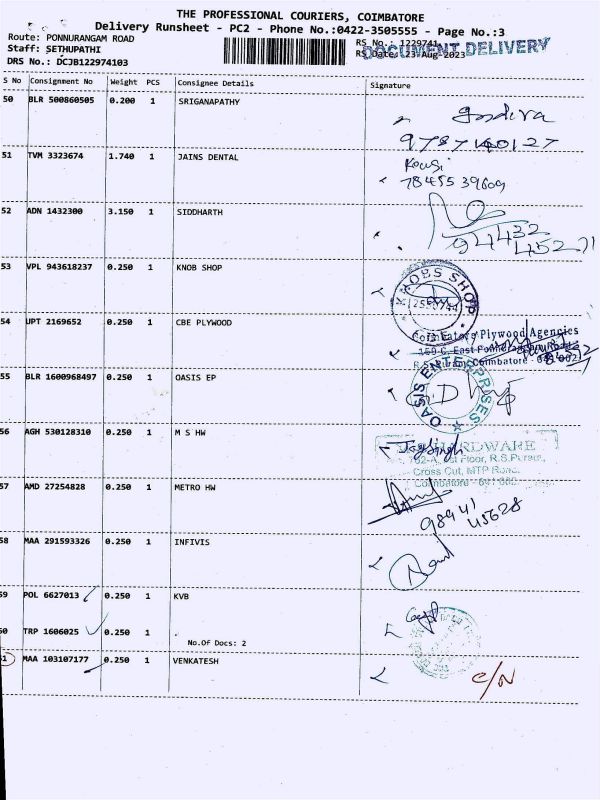 THE PROFESSIONAL COURIERS, COIMBATORE
Delivery Runsheet - PC2 - Phone No.:0422-3505555 - Page No.:3
Route: PONNURANGAM ROAD
RS No.: 1229741
DOCUMENT DELIVERY
Staff: SETHUPATHI
RS Date: 23-Aug-2023
DRS No.: DCJB122974103
S No Consignment No Weight PCS Consignee Details Signature
50 BLR 500860505 0.200 1 SRIGANAPATHY
51 TVM 3323674 1.740 1 JAINS DENTAL
52 ADN 1432300 3.150 1 SIDDHARTH
94432
45271
53 VPL 943618237 0.250 1 KNOB SHOP
KNOBS SHOP
54 UPT 2169652 0.250 1 CBE PLYWOOD
Coimbatore Plywood Agencies
Coimbatore - 641 002
55 BLR 1600968497 0.250 1 OASIS EP
OASIS ENTERPRISES
56 AGH 530128310 0.250 1 M S HW
HARDWARE
Floor, R.S.Puram,
Cross Cut, MTP Road,
Coimbatore - 641 002
57 AMD 27254828 0.250 1 METRO HW
98941
45628
58 MAA 291593326 0.250 1 INFIVIS
59 POL 6627013 0.250 1 KVB
60 TRP 1606025 0.250 1
No.Of Docs: 2
61 MAA 103107177 0.250 1 VENKATESH
C/N